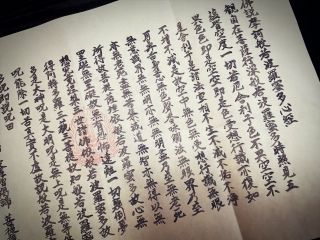 佛説摩訶般若波羅蜜多心經
觀自在菩薩行深般若波羅蜜多時照見五
蘊皆空度一切苦厄舍利子色不異空空不
異色色即是空空即是色受想行識亦復如
是舍利子是諸法空相不生不滅不垢不淨
不增不減是故空中無色無受想行識無眼
耳鼻舌身意無色聲香味觸法無眼界乃至
無意識界無無明亦無無明盡乃至無老死
亦無老死盡無苦集滅道無智亦無得以無
所得故菩提薩埵依般若波羅蜜多故心無
罣礙無罣礙故無有恐怖遠離一切顛倒夢
想究竟涅槃三世諸佛依般若波羅蜜多故
得阿耨多羅三藐三菩提故知般若波羅蜜
多是大神呪是大明呪是無上呪是無等等
呪能除一切苦真實不虚故説般若波羅蜜
多呪即説呪曰